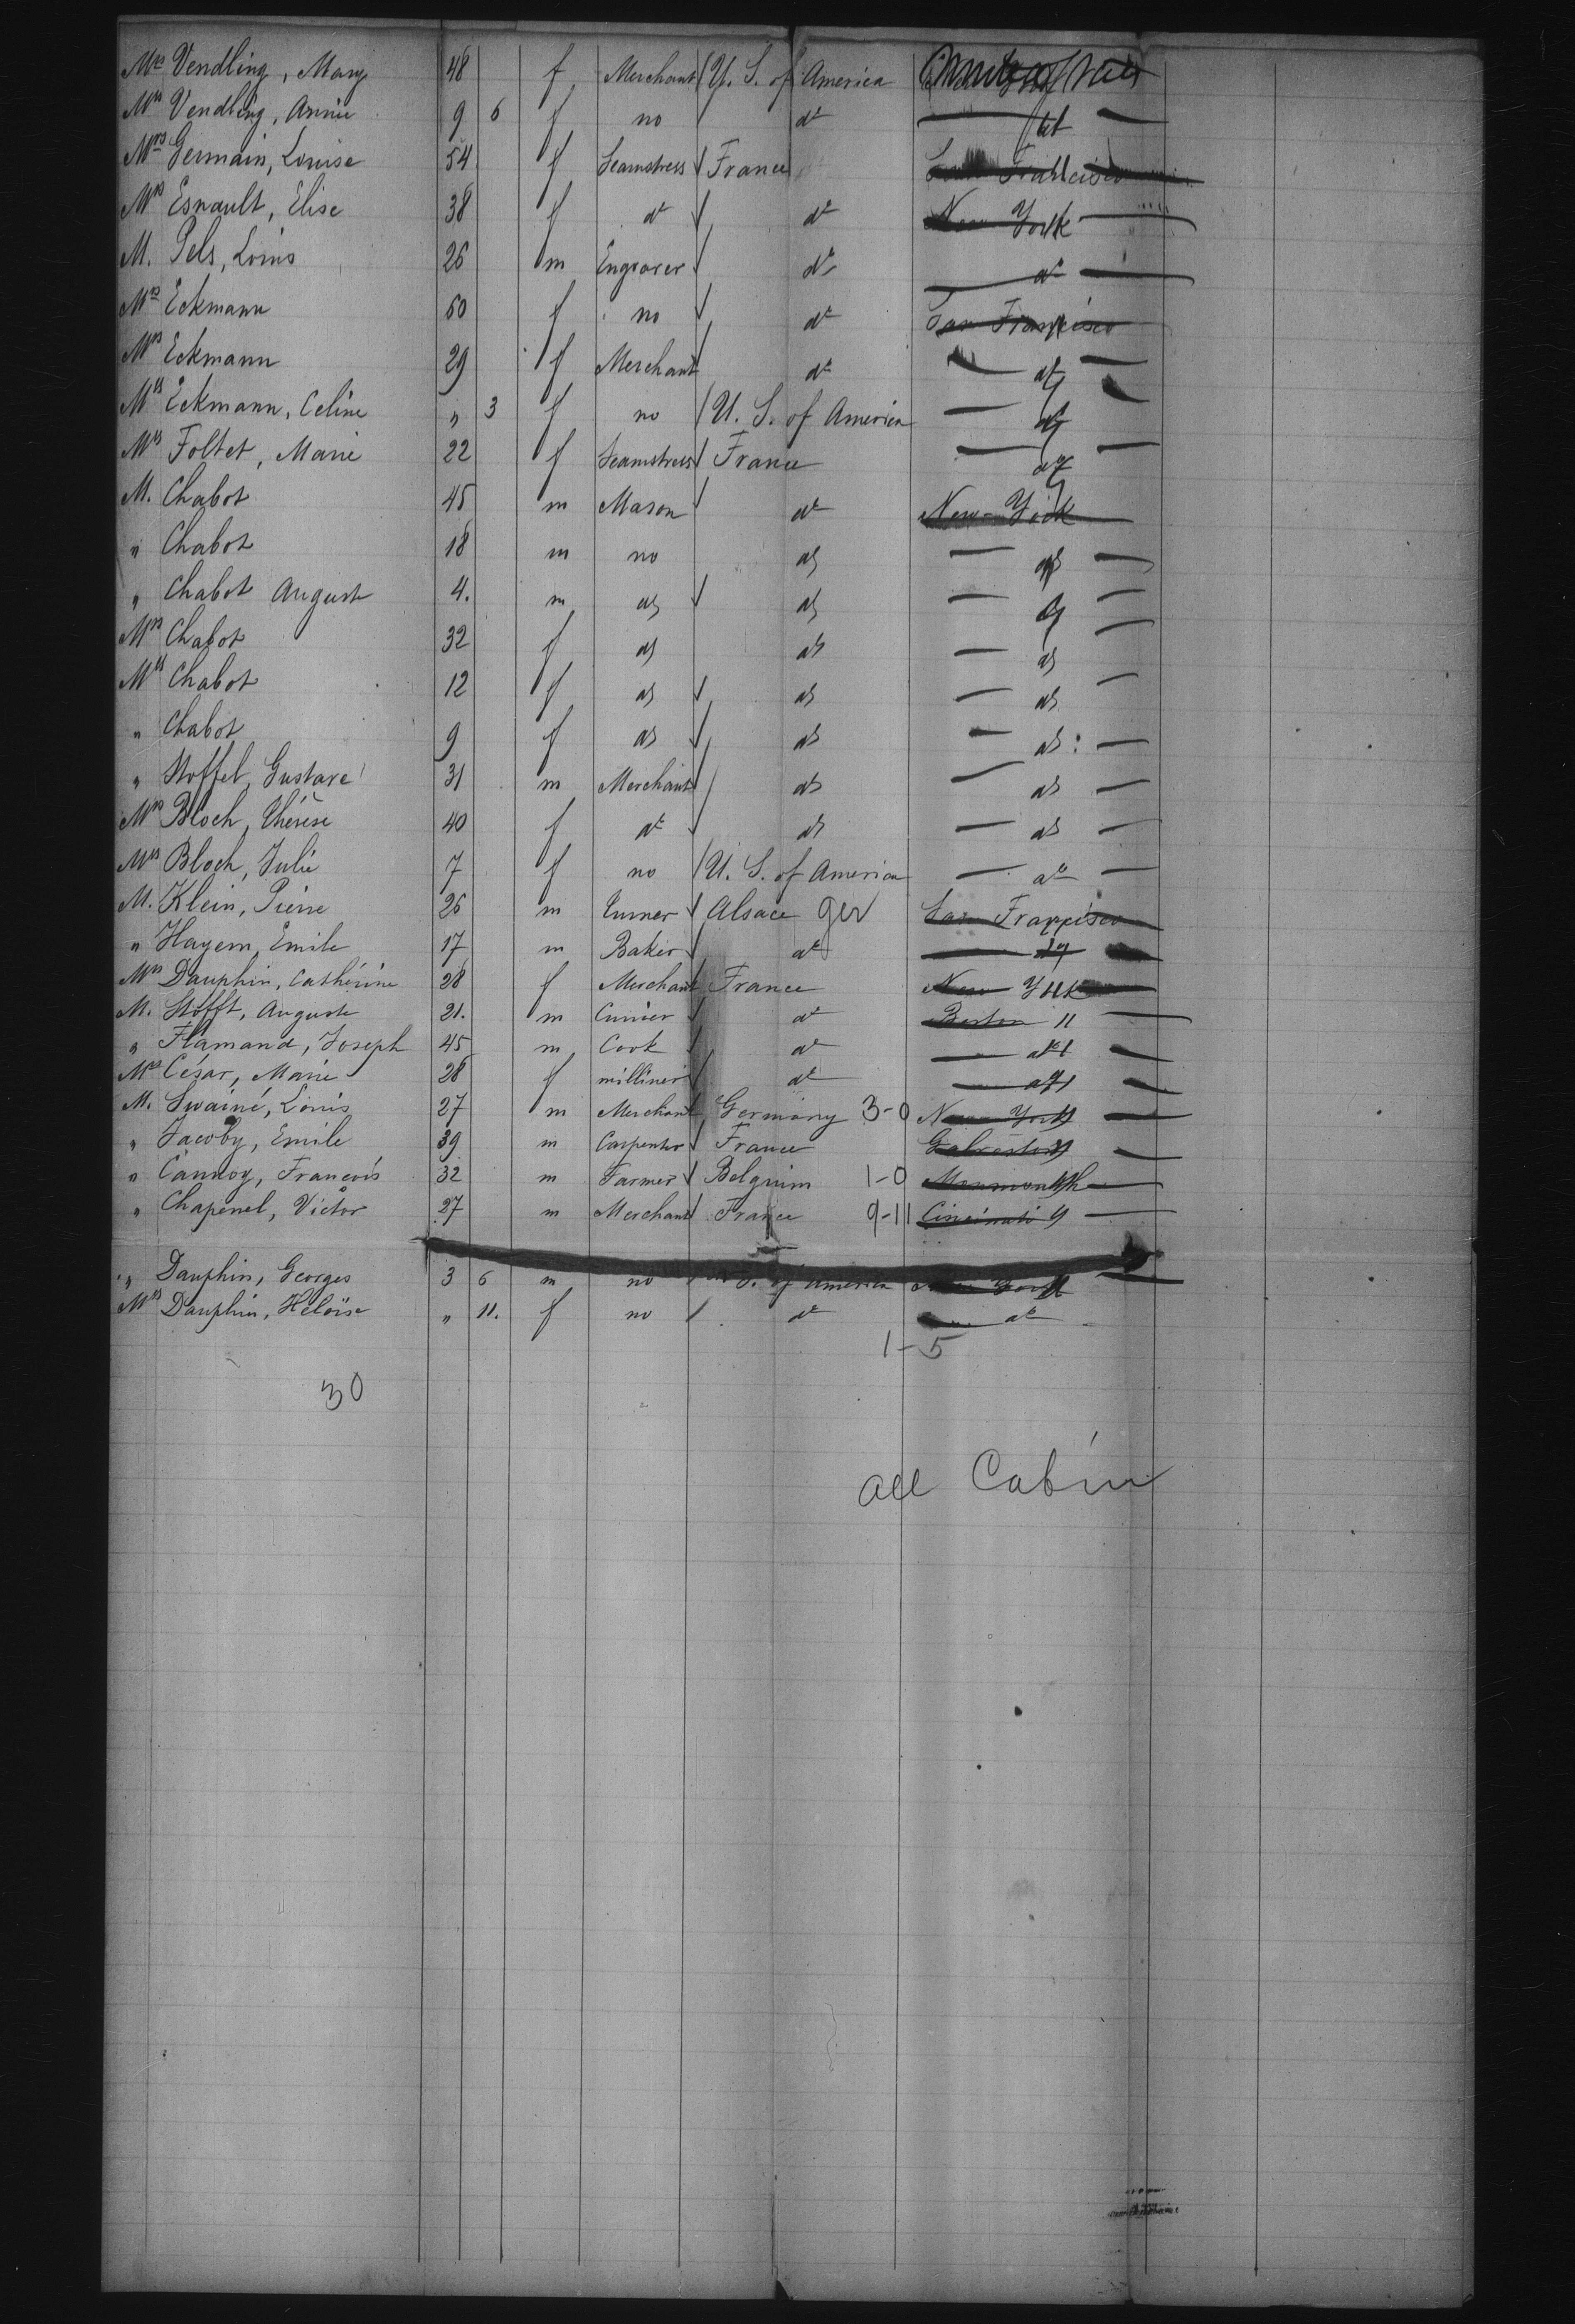 Mrs Vendling, Mary 48 f Merchant U. S. of America
Mss Vendling, Annie 9 6 f no do
Mrs Germain, Louise 54 f Seamstress France San Francisco
Mrs Esnault, Elise 38 f do do New York
M. Pels, Louis 26 m Engraver do do
Mrs Eckmann 60 f no do San Francisco
Mrs Eckmann 29 f Merchant do do
Mss Eckmann, Celine " 3 f no U. S. of America do
Mss Foltet, Marie 22 f Seamstress France do
M. Chabot 45 m Mason do New-York
" Chabot 18 m no do do
" Chabot Auguste 4. m do do do
Mrs Chabot 32 f do do do
Mss Chabot 12 f do do do
" Chabot 9 f do do do
" Stoffel, Gustave 31 m Merchant do do
Mrs Bloch, Thérèse 40 f do do do
Mss Bloch, Julie 7 f no U. S. of America do
M. Klein, Pierre 26 m Turner Alsace Ger San Francisco
" Hayem, Emile 17 m Baker do do
Mrs Dauphin, Cathérine 28 f Merchant France New York
M. Stofft, Auguste 21. m Currier do Boston 11
" Flamand, Joseph 45 m Cook do do
Mrs César, Marie 28 f milliner do do
M. Swainé, Louis 27 m Merchant Germany 3-0 New York
" Jacoby, Emile 39 m Carpenter France Galveston
" Cannoy, François 32 m Farmer Belgium 1-0 Monmouth
" Chapenel, Victor 27 m Merchant France 9-11 Cincinnati
" Dauphin, Georges 3 6 m no U. S. of America New York
Mss Dauphin, Héloïse " 11. f no do do
1-5
30
all Cabin